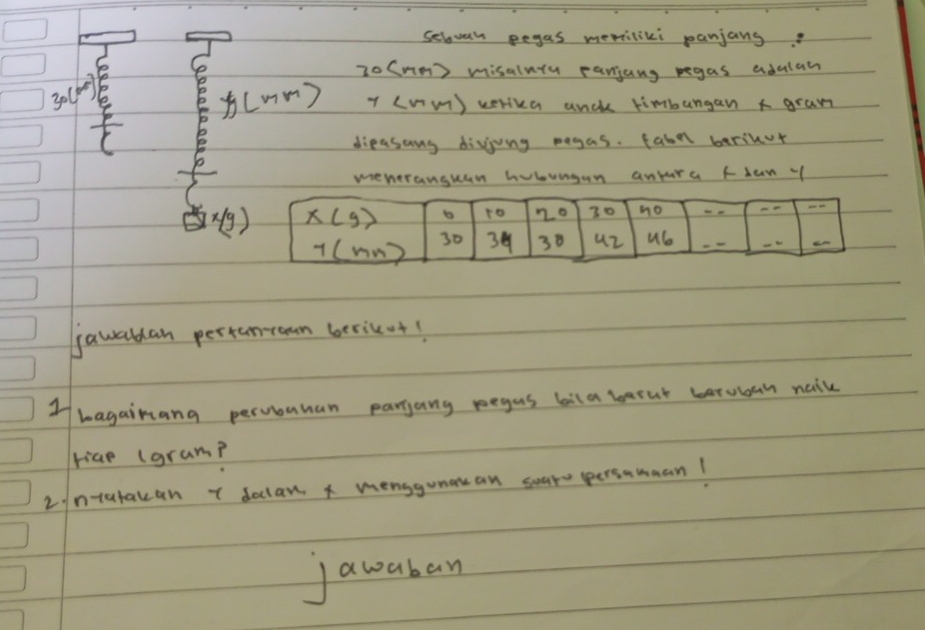 Sebuah pegas memiliki panjang :
30 (mm) misalnya panjang pegas adalah
30 (mm)
y (mm)
Y (mm) ketika anak timbangan x gram
dipasang diujung pegas. tabel berikut
menerangkan hubungan antara x dan y
x(g)
X (g) 0 10 20 30 40 -- -- --
Y (mm) 30 34 38 42 46 -- -- --
jawablah pertanyaan berikut!
1 bagaimana perubahan panjang pegas bila barut berubah naik
tiap 1gram?
2. nyatakan y dalam x menggunakan suatu persamaan!
jawaban